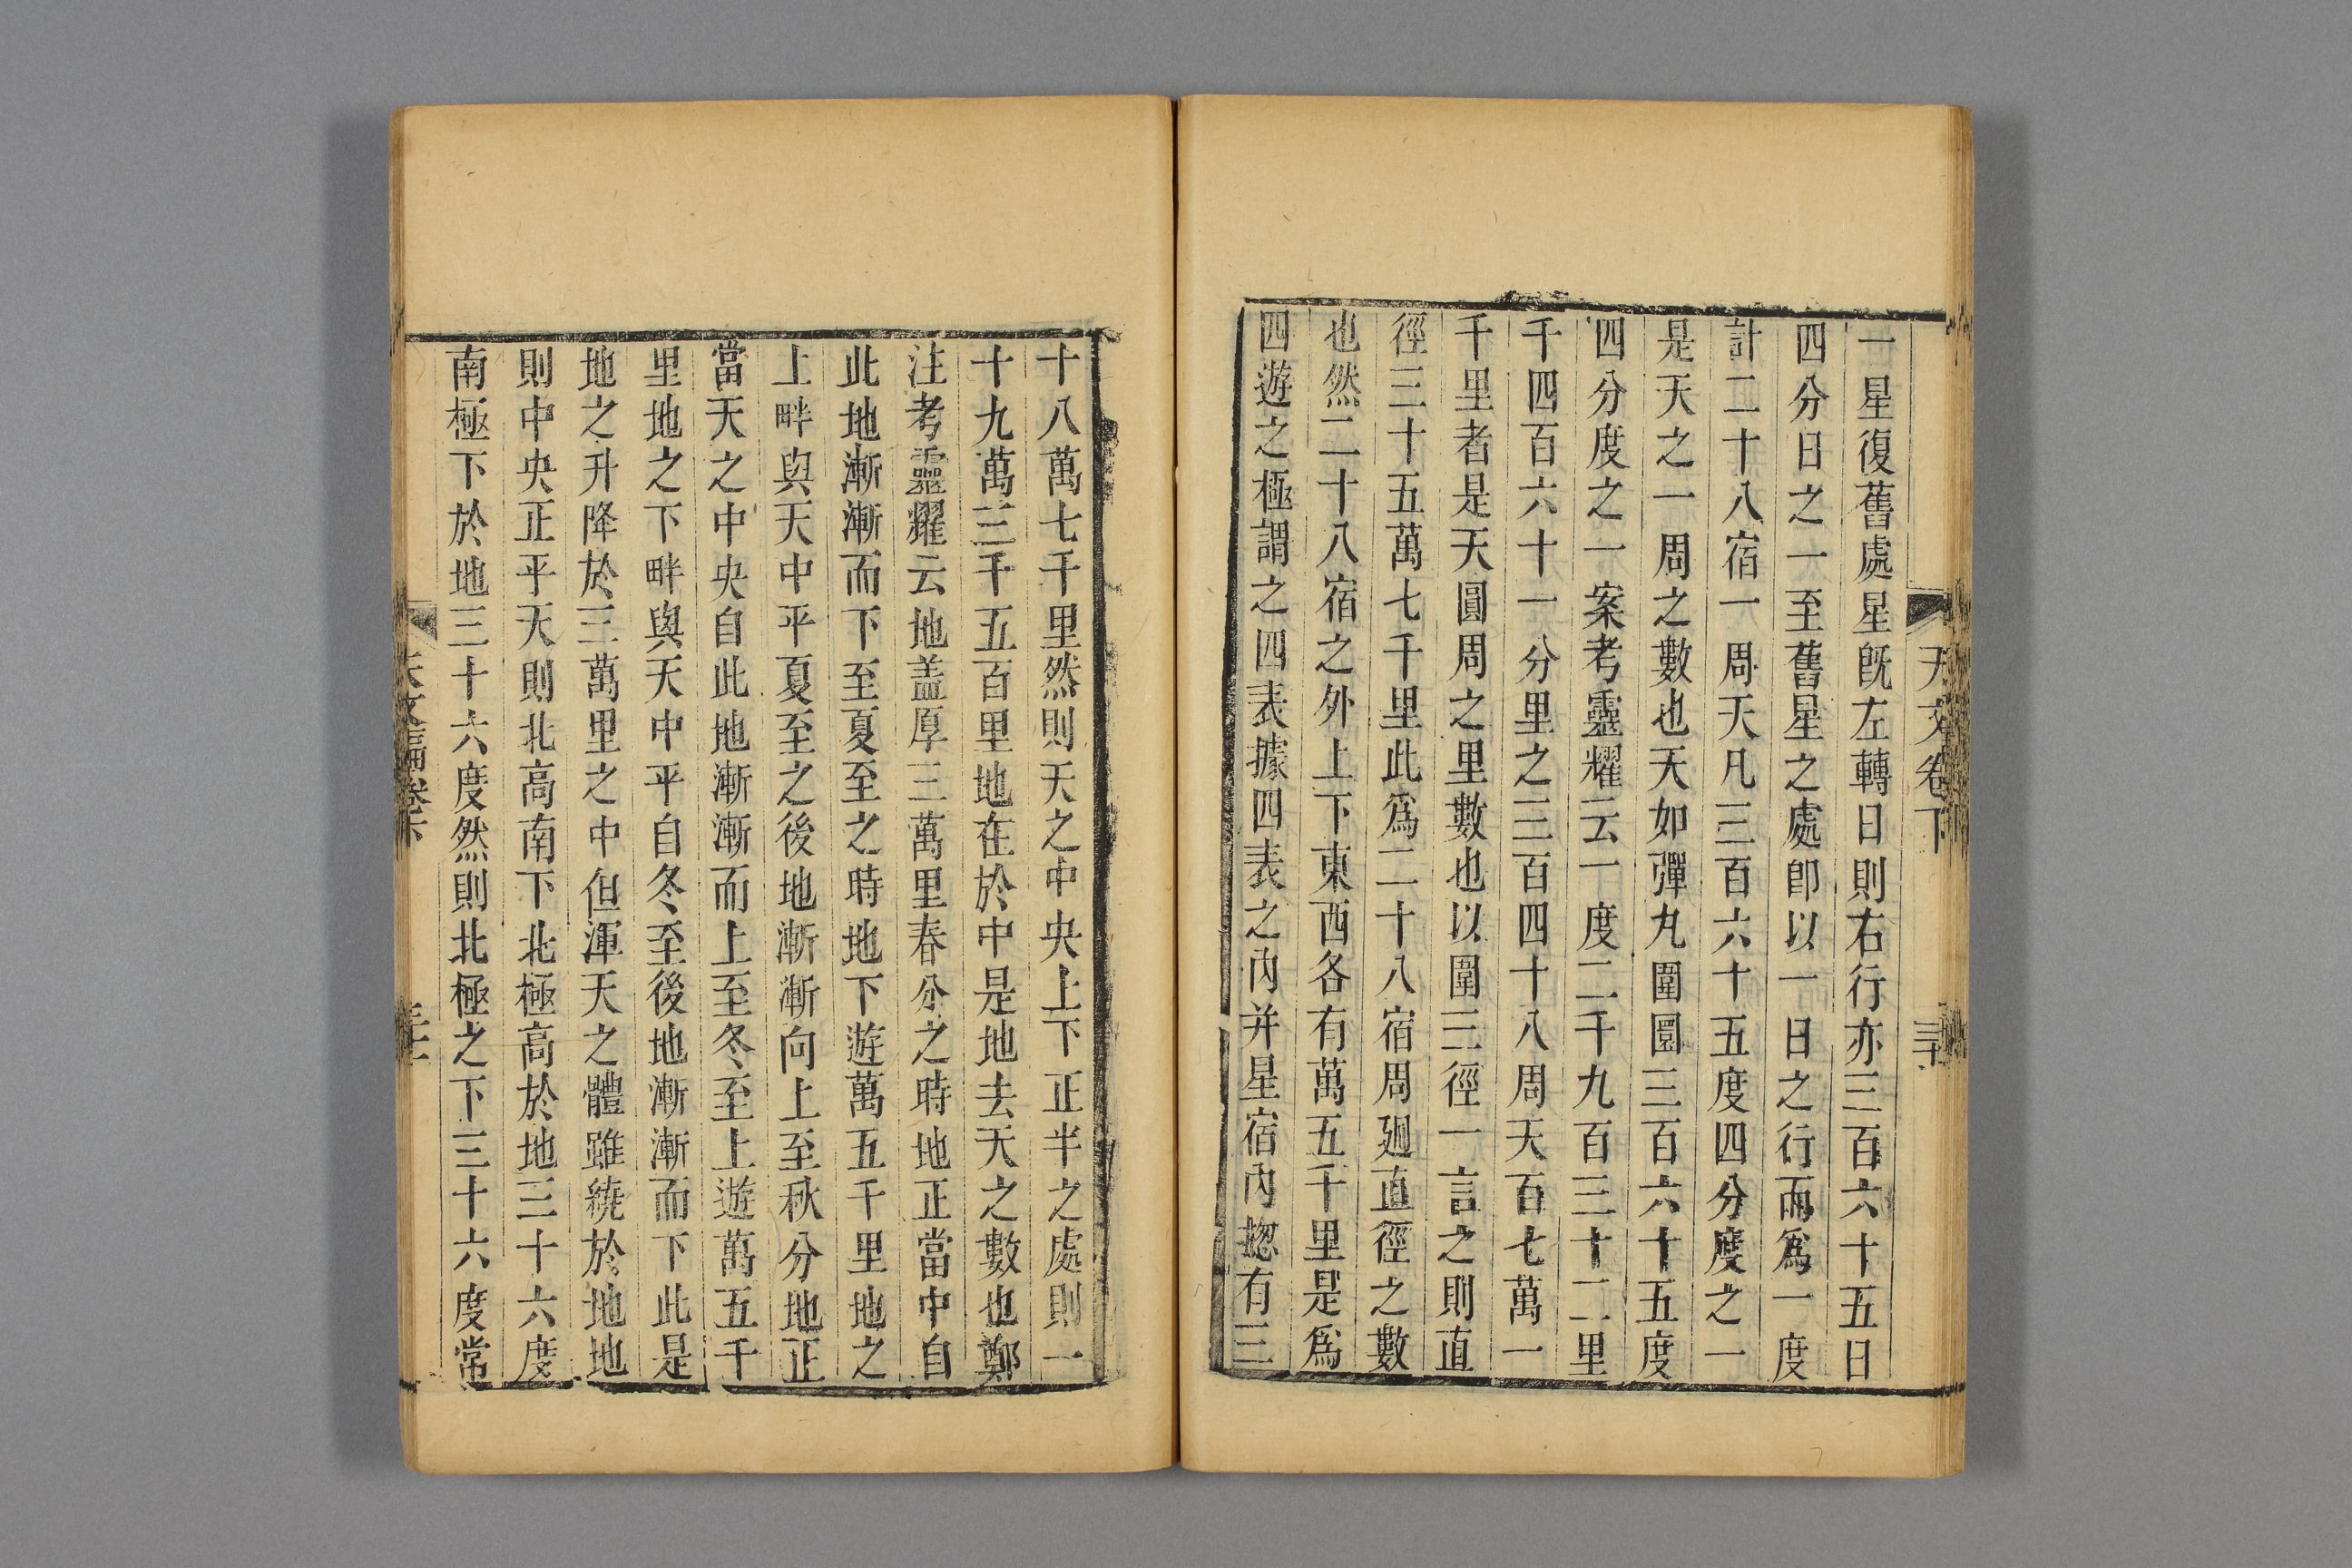 天文卷下 三十
一星復舊處星旣左轉日則右行亦三百六十五日
四分日之一至舊星之處卽以一日之行而爲一度
計二十八宿一周天凡三百六十五度四分度之一
是天之一周之數也天如彈丸圍圜三百六十五度
四分度之一案考靈耀云一度二千九百三十二里
千四百六十一分里之三百四十八周天百七萬一
千里者是天圓周之里數也以圍三徑一言之則直
徑三十五萬七千里此爲二十八宿周廻直徑之數
也然二十八宿之外上下東西各有萬五千里是爲
四遊之極謂之四表據四表之內并星宿內揔有三
十八萬七千里然則天之中央上下正半之處則一
十九萬三千五百里地在於中是地去天之數也鄭
注考靈耀云地盖厚三萬里春分之時地正當中自
此地漸漸而下至夏至之時地下遊萬五千里地之
上畔與天中平夏至之後地漸漸向上至秋分地正
當天之中央自此地漸漸而上至冬至上遊萬五千
里地之下畔與天中平自冬至後地漸漸而下此是
地之升降於三萬里之中但渾天之體雖繞於地地
則中央正平天則北高南下北極高於地三十六度
南極下於地三十六度然則北極之下三十六度常
天文編卷下